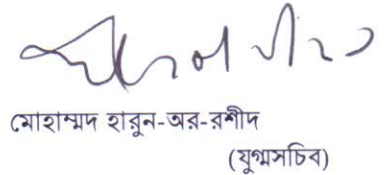 মোহাম্মদ হারুন-অর-রশীদ
(যুগ্মসচিব)